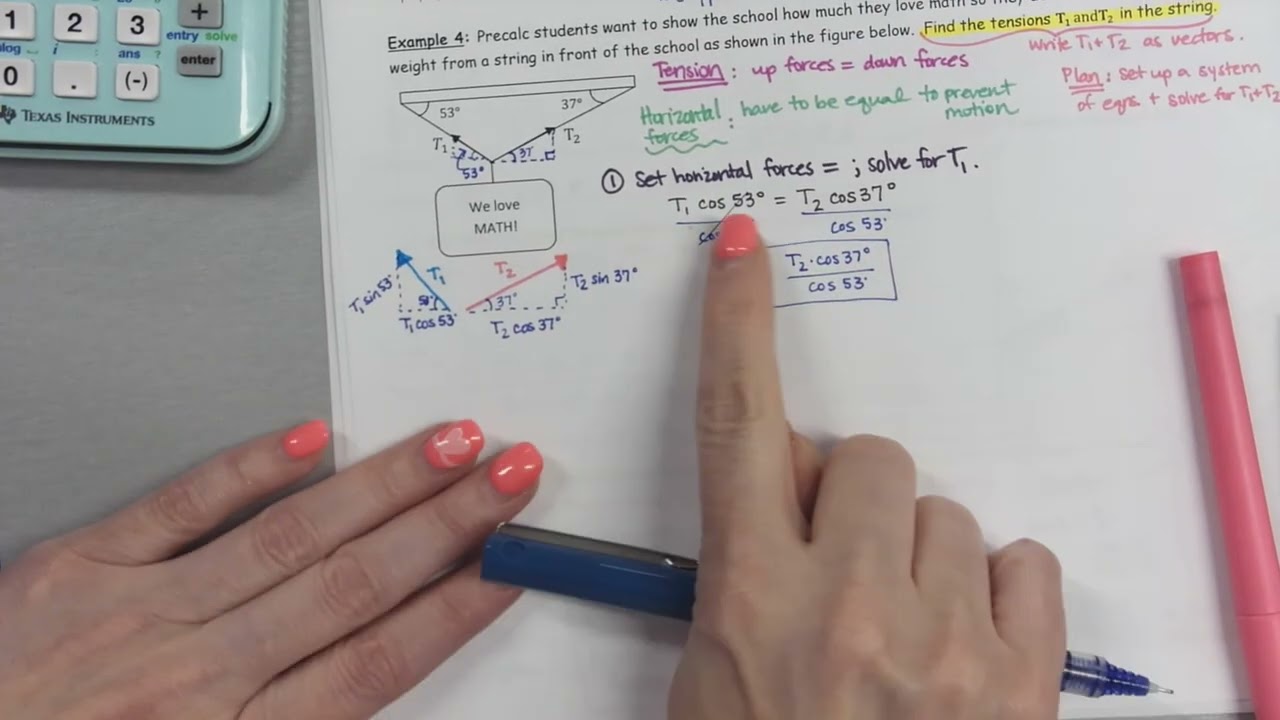 1 2 3 +
entry solve
ans ?
i
0 . (-) enter
TEXAS INSTRUMENTS
Example 4: Precalc students want to show the school how much they love math so
weight from a string in front of the school as shown in the figure below. Find the tensions T₁ and T₂ in the string.
Write T₁ + T₂ as vectors.
Tension: up forces = down forces
Horizontal forces: have to be equal to prevent motion
Plan: set up a system
of eqns + solve for T₁+T₂
53° 37°
T₁ T₂
53° 37
We love
MATH!
① Set horizontal forces = ; solve for T₁.
T₁ cos 53° = T₂ cos 37°
cos 53°
T₂·cos 37°
cos 53°
T₁ T₂
T₁ sin 53° 53° 37° T₂ sin 37°
T₁ cos 53° T₂ cos 37°